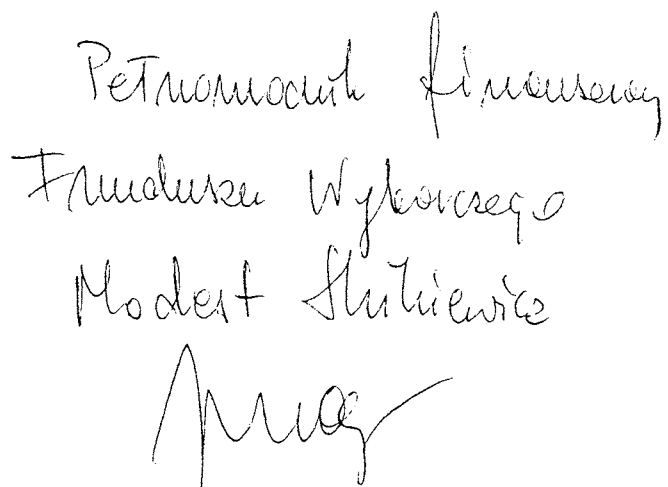 Pełnomocnik finansowy
Funduszu Wyborczego
Modest